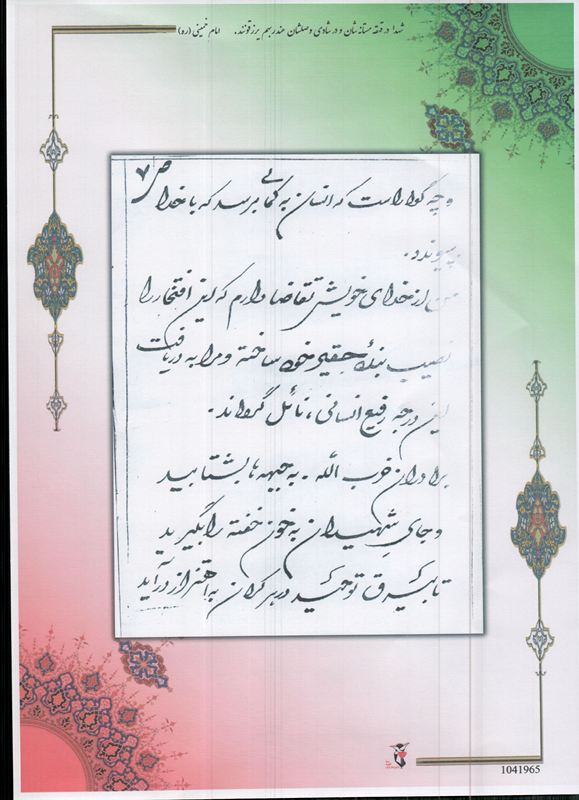 شهدا در قهقهه مستانه‌شان و در شادی وصلشان عند ربهم یرزقونند. امام خمینی (ره)
ص ۷
و چه گوارا است که انسان به کمالی برسد که با خدا
بپیوندد.
من از خدای خویش تقاضا دارم که این افتخار را
نصیب بنده حقیر خود ساخته و مرا به دریافت
این درجه رفیع انسانی، نائل گرداند.
برادران حزب الله. به جبهه ها بشتابید
و جای شهیدان به خون خفته را بگیرید
تا بیرق توحید در هر کران به اهتزاز درآید
1041965